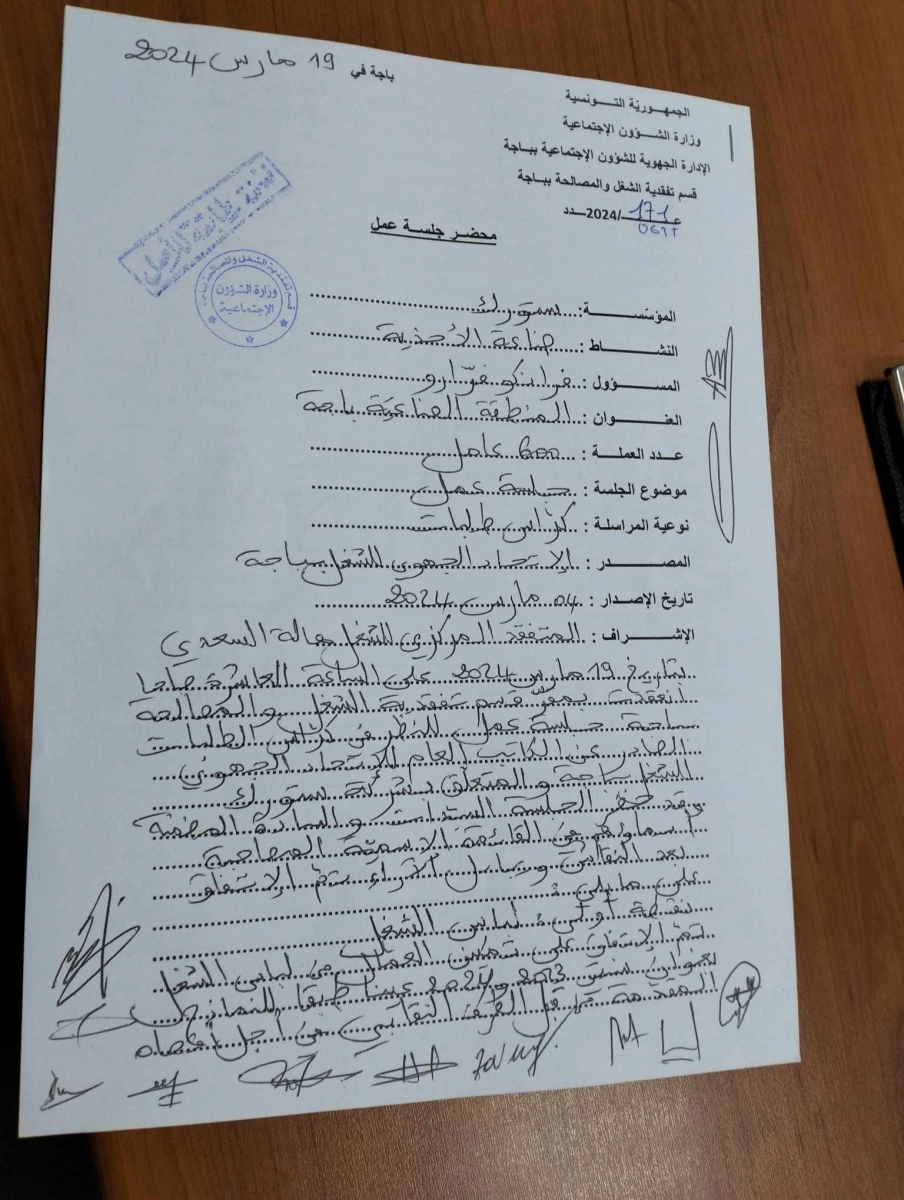 باجة في 19 مارس 2024
الجمهوريّة التونسية
وزارة الشؤون الإجتماعية
الإدارة الجهوية للشؤون الإجتماعية بباجة
قسم تفقدية الشغل والمصالحة بباجة
عـ171ـ/2024ـدد
UGTT
نسخة مطابقة للأصل
قسم تفقدية الشغل والمصالحة بباجة
وزارة الشؤون
الإجتماعية
محضر جلسة عمل
المؤسسة: ستورك
النشاط : صناعة الأحذية
المسؤول : فرانكو فرّارو
العنوان : المنطقة الصناعية باجة
عدد العملة : 600 عامل
موضوع الجلسة : جلسة عمل
نوعية المراسلة : كرّاس طلبات
المصدر : الإتحاد الجهوي للشغل بباجة
تاريخ الإصدار : 04 مارس 2024
الإشراف : المتفقد المركزي للشغل هالة السعدي
بتاريخ 19 مارس 2024 على الساعة العاشرة صباحا
انعقدت بمقرّ قسم تفقدية الشغل والمصالحة
بباجة جلسة عمل للنظر في كرّاس الطلبات
الصادر عن الكاتب العام للاتحاد الجهوي
للشغل بباجة والمتعلّق بشركة ستورك
وقد حضر الجلسة السيدات والسادة الممضية
أسماؤهم في القائمة الإسمية المصاحبة
بعد النقاش وتبادل الآراء تمّ الإتفاق
على ما يلي :
نقطة أولى : لباس الشغل
تمّ الإتفاق على تمكين العمال من لباس الشغل
بعنوان سنتي 2023 و 2024 عينا طبقا للنماذج
المقدمة من قبل الطرف النقابي في أجل أقصاه